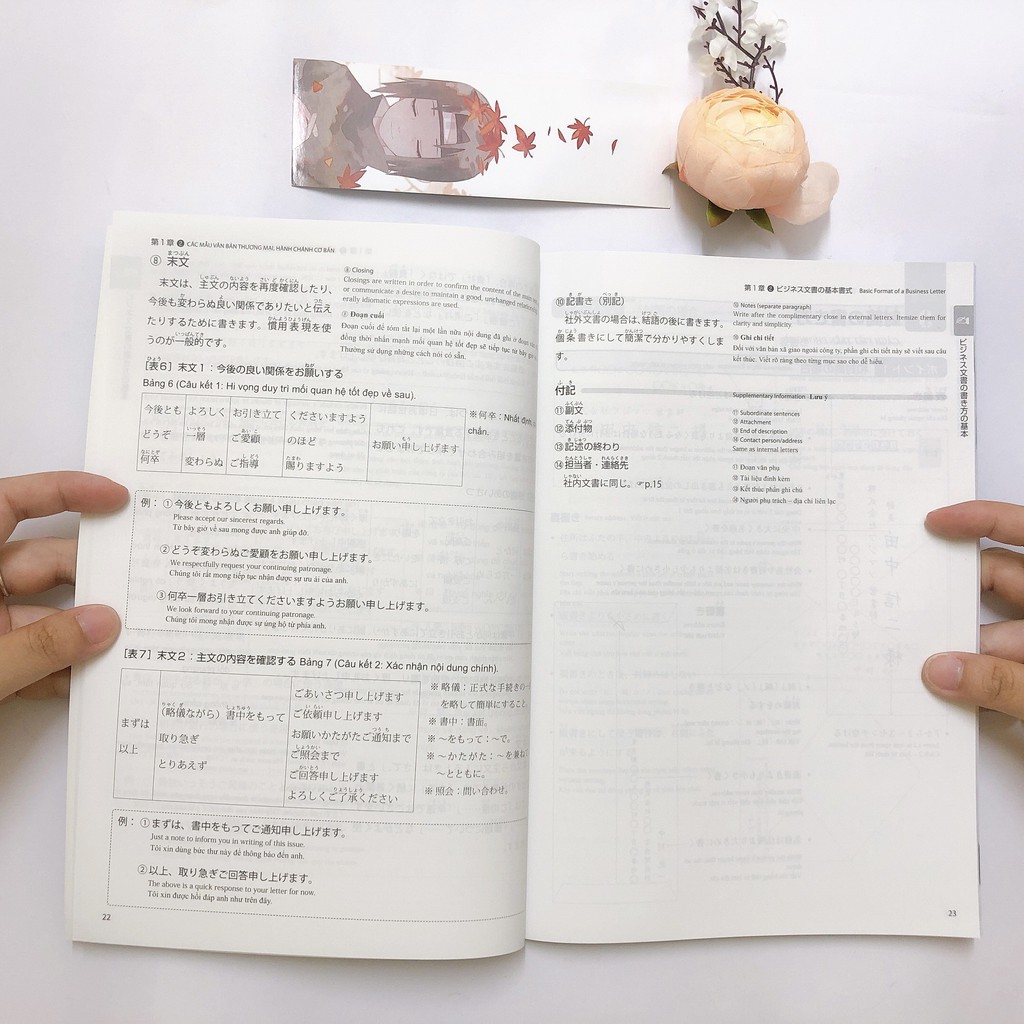 第1章 ❷ CÁC MẪU VĂN BẢN THƯƠNG MẠI, HÀNH CHÁNH CƠ BẢN
⑧ 末文
まつぶん
末文は、主文の内容を再度確認したり、
今後も変わらぬ良い関係でありたいと伝え
たりするために書きます。慣用表現を使
うのが一般的です。
⑧ Closing
Closings are written in order to confirm the content of the main
or communicate a desire to maintain a good, unchanged
erally idiomatic expressions are used.
Đoạn cuối
Đoạn cuối để tóm tắt lại một lần nữa nội dung đã ghi ở đoạn
đồng thời nhấn mạnh mối quan hệ tốt đẹp sẽ tiếp tục từ bây giờ
Thường sử dụng những cách nói có sẵn.
[表6] 末文1：今後の良い関係をお願いする
Bảng 6 (Câu kết 1: Hi vọng duy trì mối quan hệ tốt đẹp về sau).
今後とも よろしく お引き立て くださいますよう
どうぞ 一層 ご愛顧 のほど お願い申し上げます
何卒 変わらぬ ご指導 賜りますよう
※何卒：Nhất định,
chắn.
例：①今後ともよろしくお願い申し上げます。
Please accept our sincerest regards.
Từ bây giờ về sau mong được anh giúp đỡ.
②どうぞ変わらぬご愛顧をお願い申し上げます。
We respectfully request your continuing patronage.
Chúng tôi rất mong tiếp tục nhận được sự ưu ái của anh.
③何卒一層お引き立てくださいますようお願い申し上げます。
We look forward to your continuing patronage.
Chúng tôi mong nhận được sự ủng hộ từ phía anh.
[表7] 末文2：主文の内容を確認する Bảng 7 (Câu kết 2: Xác nhận nội dung chính).
まずは
以上
（略儀ながら）書中をもって
取り急ぎ
とりあえず
ごあいさつ申し上げます
ご依頼申し上げます
お願いかたがたご通知まで
ご照会まで
ご回答申し上げます
よろしくご了承ください
※ 略儀：正式な手続きの一
を略して簡単にすること。
※ 書中：書面。
※ ～をもって：～で。
※ ～かたがた：～を兼ね
～とともに。
※ 照会：問い合わせ。
例：①まずは、書中をもってご通知申し上げます。
Just a note to inform you in writing of this issue.
Tôi xin dùng bức thư này để thông báo đến anh.
②以上、取り急ぎご回答申し上げます。
The above is a quick response to your letter for now.
Tôi xin được hồi đáp anh như trên đây.
22
第1章 ❷ ビジネス文書の基本書式 Basic Format of a Business Letter
⑩ 記書き（別記）
社外文書の場合は、結語の後に書きます。
個条書きにして簡潔で分かりやすくしま
す。
⑩ Notes (separate paragraph)
Write after the complimentary close in external letters. Itemize them for
clarity and simplicity.
⑩ Ghi chi tiết
Đối với văn bản xã giao ngoài công ty, phần ghi chi tiết này sẽ viết sau câu
kết thúc. Viết rõ ràng theo từng mục sao cho dễ hiểu.
付記
Supplementary Information Lưu ý
⑪副文
⑫添付物
⑬記述の終わり
⑭担当者・連絡先
社内文書に同じ。☞p.15
⑪ Subordinate sentences
⑫ Attachment
⑬ End of description
⑭ Contact person/address
Same as internal letters
⑪ Đoạn văn phụ
⑫ Tài liệu đính kèm
⑬ Kết thúc phần ghi chú
⑭ Người phụ trách – địa chỉ liên lạc
ビジネス文書の書き方の基本
23